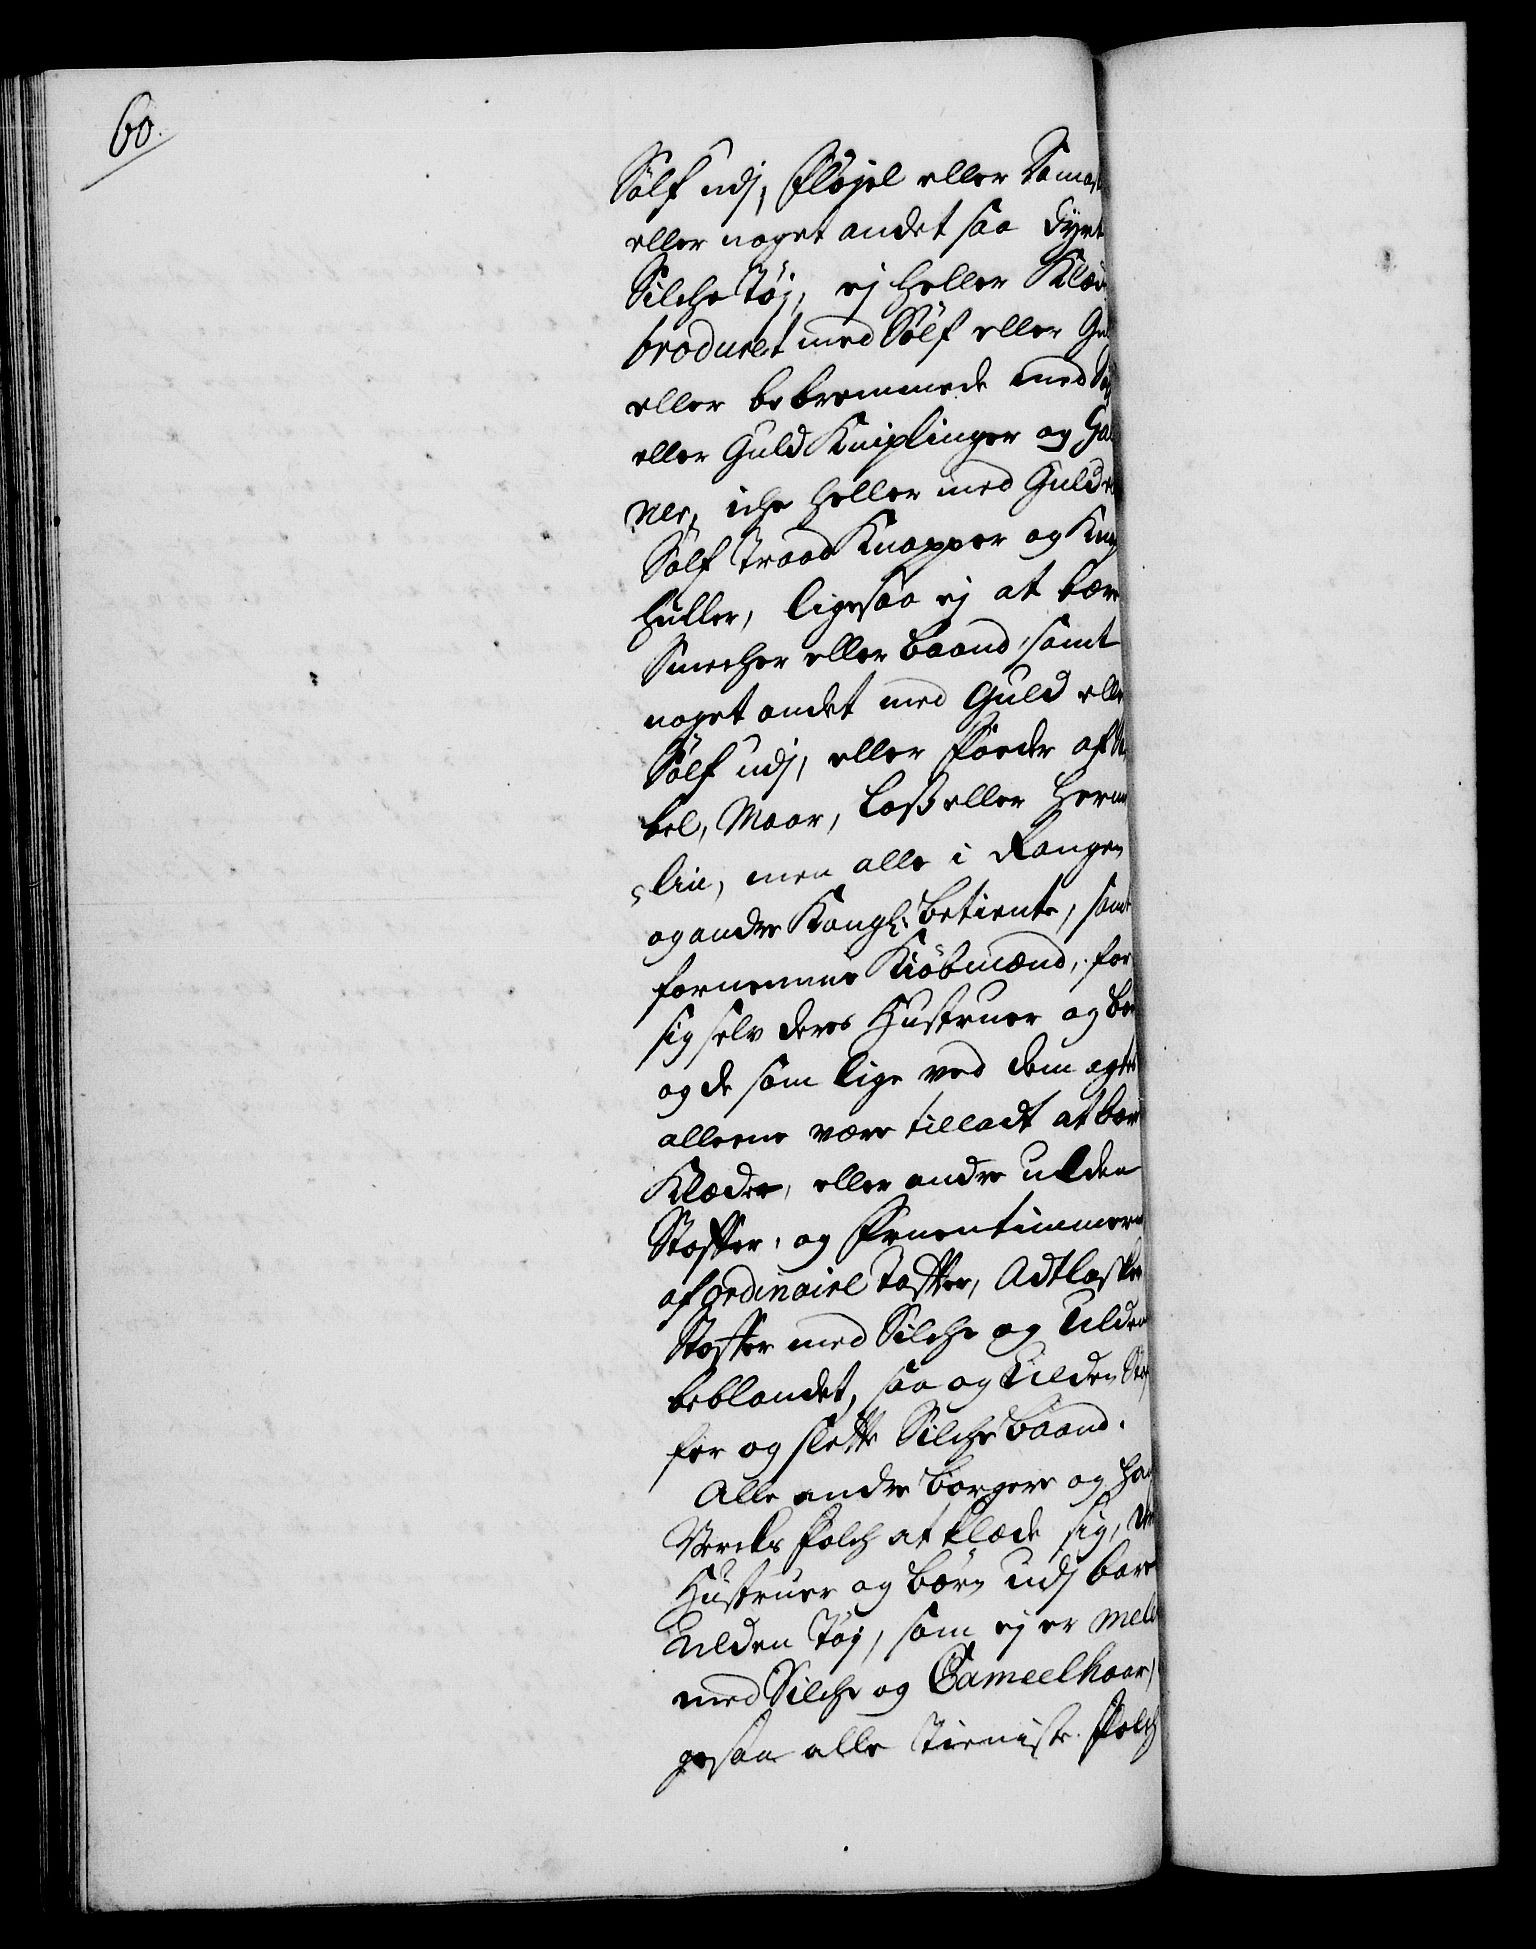 60.
Sölf udj, Fløjel eller Damas
eller noget andet saa dyrt
Silche Tøj, ej heller Klæd
broduret med Sölf eller Gul
eller bebremmede med Sö
eller Guld Kniplinger og Ga
ner, iche heller med Guld e
Sölf Traad Knapper og Knap
huller, ligesaa ej at bære
Smecher eller baand, samt
noget andet med Guld elle
Sölf udj, eller Foeder af
bel, Maar, Loss eller Herm
lin, men alle i Rangen
og andre Kongl: betiente, samt
fornemme Kiöbmænd, for
sig selv deres Hustruer og bö
og de som lige ved dem agte
alleene være tilladt at bær
Klæder, eller andre ulden
Stoffer, og Fruentimmere
af ordinaire Tafter, Adtlasker
Stoffer med Silche og Ulden
beblandet, saa og Ulden Stof
fer og slette Silche baand.
Alle andre borgere og Haand
Vercks Folch at klæde sig, der
Hustruer og börn udj bare
Ulden Tøj, som ej er mele
med Silche og Cameelhaar,
gesaa alle Tieniste Folch